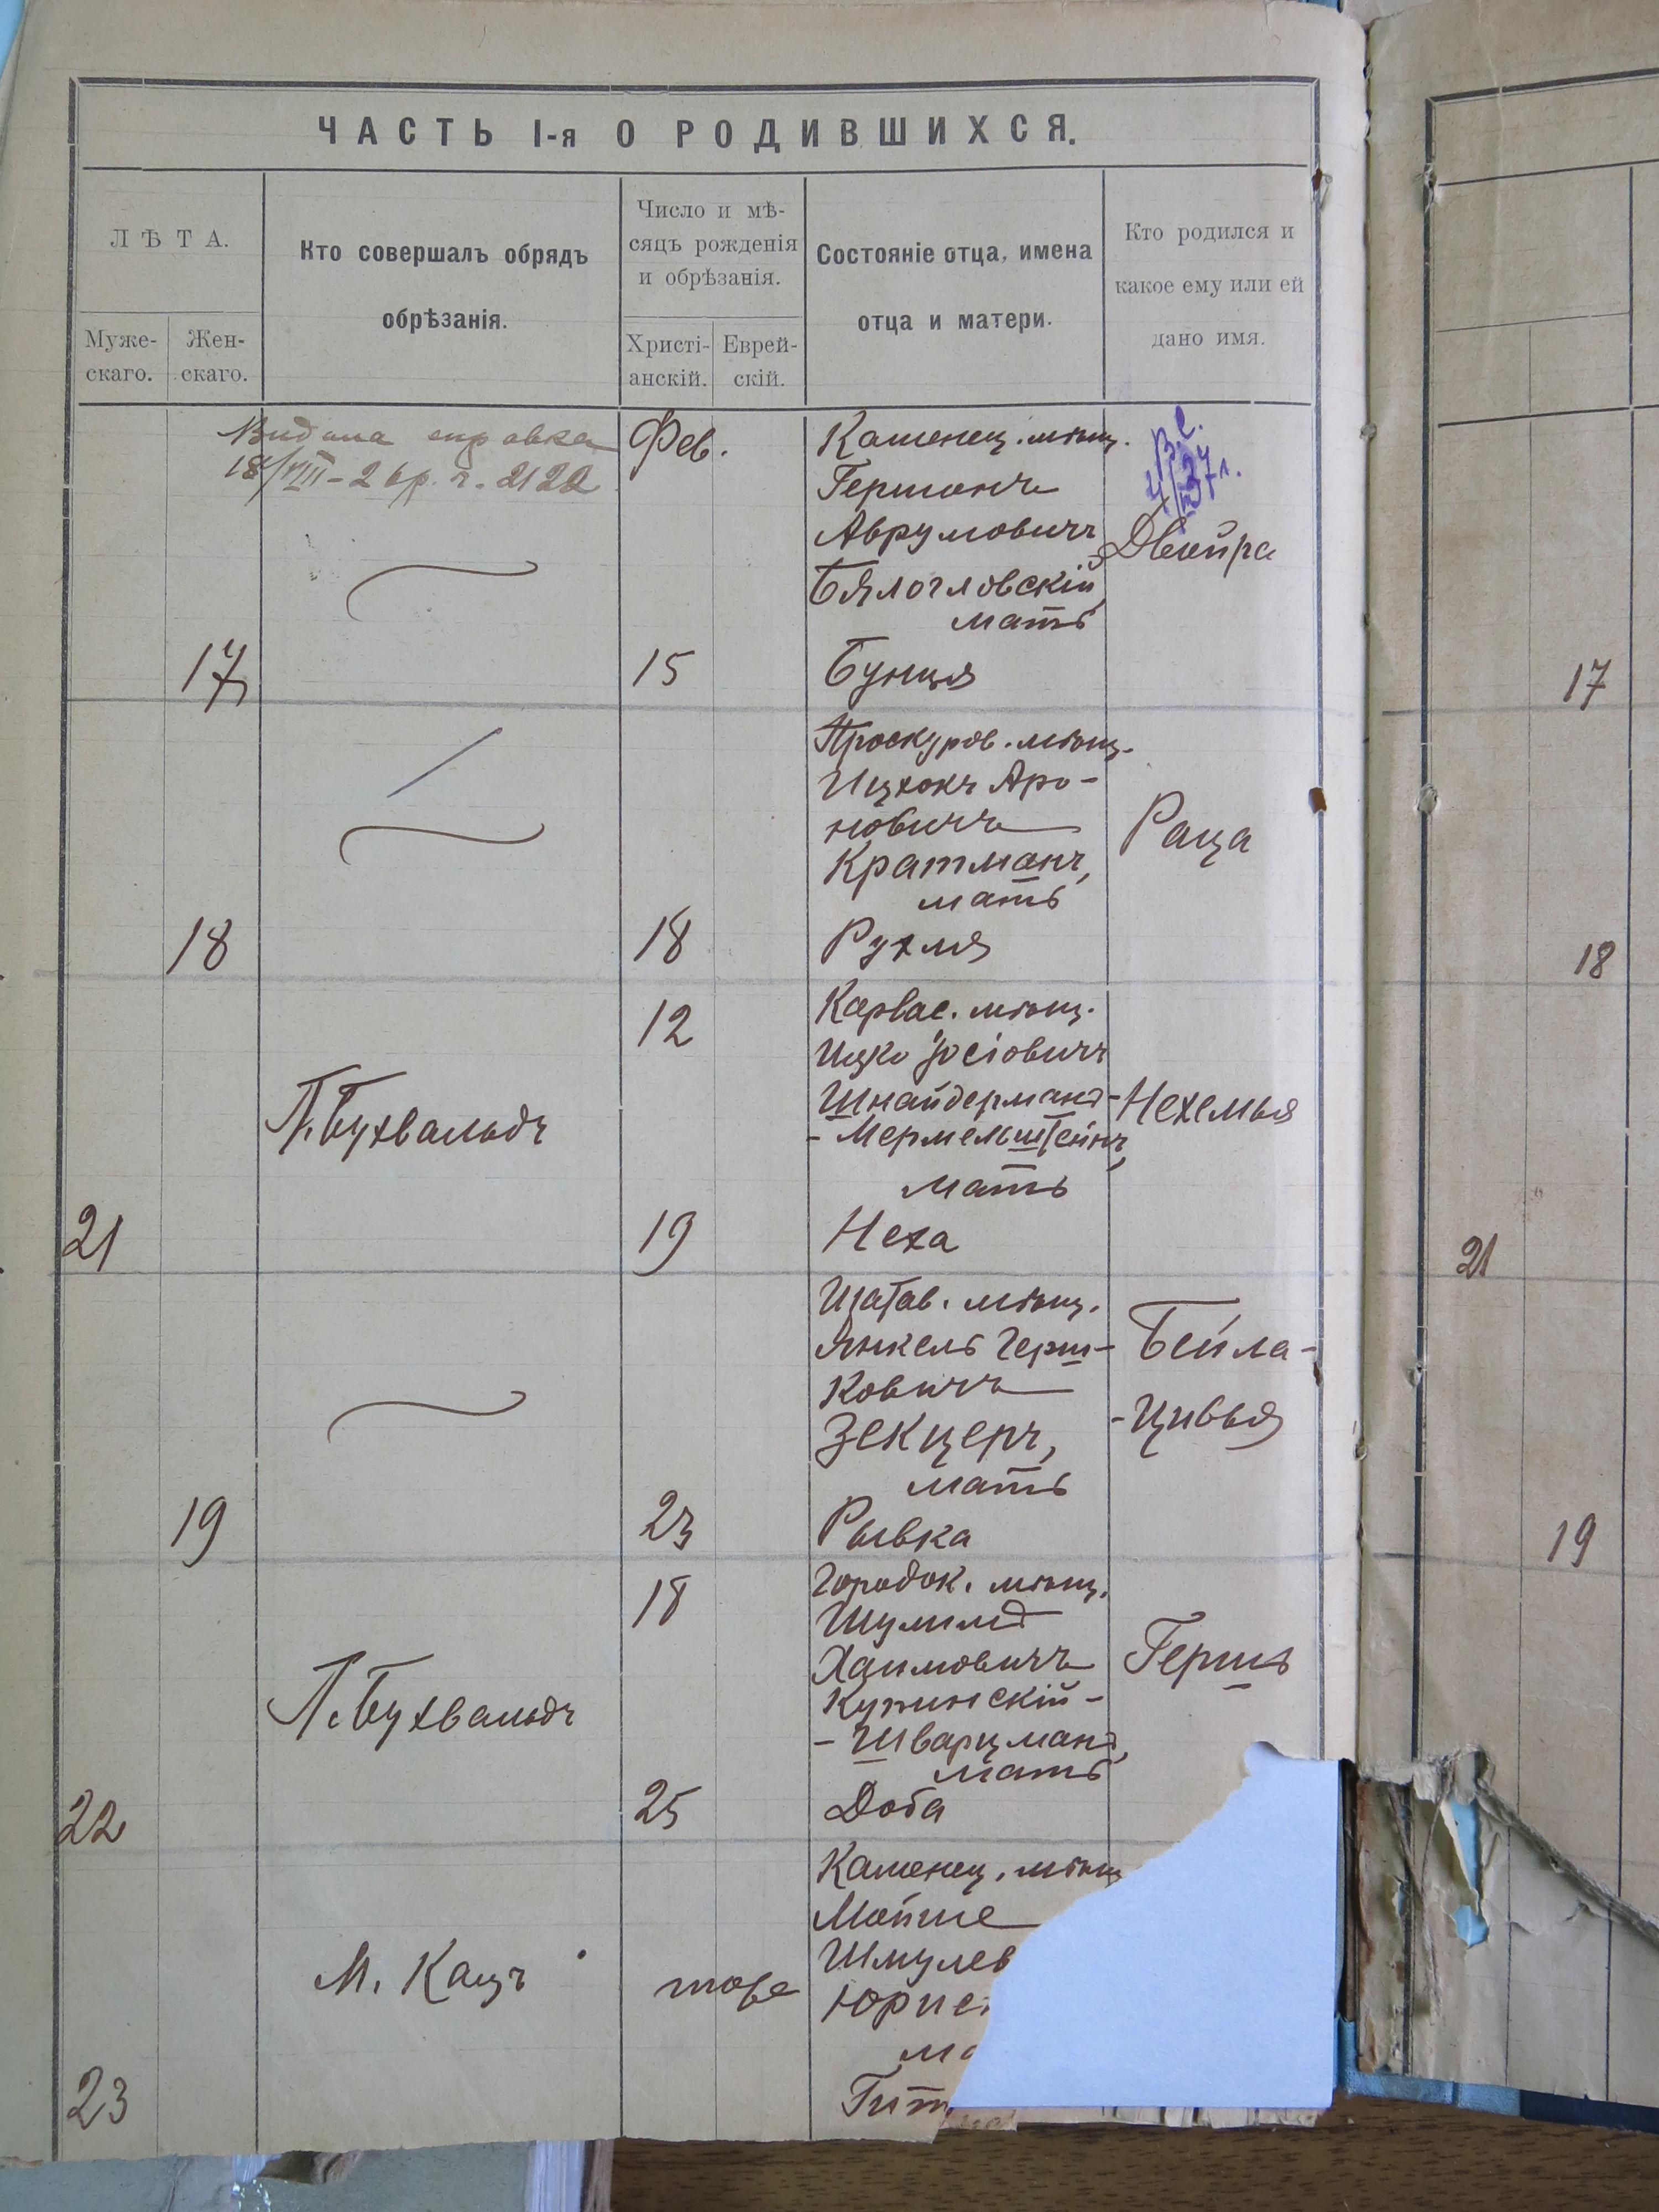 ЧАСТЬ I-я О РОДИВШИХСЯ.
ЛѢТА.
Муже-
скаго.
Жен-
скаго.
Кто совершалъ обрядъ
обрѣзанія.
Число и мѣ-
сяцъ рожденія
и обрѣзанія.
Христі-
анскій.
Еврей-
скій.
Состояніе отца, имена
отца и матери.
Кто родился и
какое ему или ей
дано имя.
Видана справка
18/VIII-26р. ч. 2122
17
Фев.
15
Каменец. мѣщ.
Гершонъ
Аврумовичъ
Бялогловскій,
мать
Бунця
Двойра
17
18
18
Проскуров. мѣщ.
Ицхокъ Аро-
новичъ
Кратманъ,
мать
Рухля
Раца
18
21
П. Бухвальдъ
12
19
Карвас. мѣщ.
Ицко Іосіовичъ
Шнайдерманъ-
-Мермельштейнъ,
мать
Неха
Нехемья
21
19
23
Шатав. мѣщ.
Янкель Герш-
ковичъ
Зекцеръ,
мать
Рывка
Бейла-
-Цивья
19
22
П. Бухвальдъ
18
25
Городок. мѣщ.
Шулимъ
Хаимовичъ
Купинскій-
-Шварцманъ,
мать
Доба
Гершь
23
М. Кацъ
тоже
Каменец. мѣщ
Мойше
Шмулев
Юрис
ма
Гит